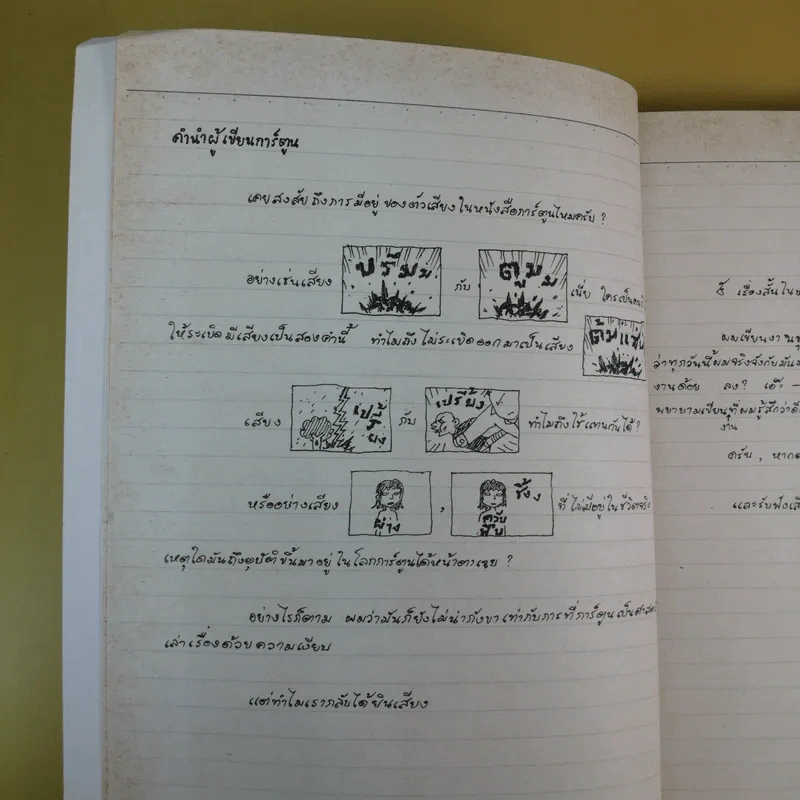 คำนำผู้เขียนการ์ตูน
เคยสงสัยถึงการมีอยู่ของตัวเสียงในหนังสือการ์ตูนไหมครับ ?
อย่างเช่นเสียง บรึ้มมม กับ ตูมมม เนี่ย ใครเป็นคน
ให้ระเบิดมีเสียงเป็นสองคำนี้ ทำไมถึงไม่ระเบิดออกมาเป็นเสียง ต้มแซ่บ
เสียง เปรี้ยง กับ เปรี้ยง ทำไมถึงใช้แทนกันได้ ?
หรืออย่างเสียง ผ่าง , ควับ ซึ้ง ที่ไม่มีอยู่ในชีวิตจริง
เหตุใดมันถึงอุบัติขึ้นมาอยู่ในโลกการ์ตูนได้หน้าตาเฉย ?
อย่างไรก็ตาม ผมว่ามันก็ยังไม่น่ากังขาเท่ากับการที่การ์ตูนเป็นศาสตร์
เล่าเรื่องด้วยความเงียบ
แต่ทำไมเรากลับได้ยินเสียง
เรื่องสั้นใน
ผมเขียนงาน
ว่าทุกวันนี้ผมจริงจังกับมัน
งานด้อย ลง?
พยายามเขียนที่ผมรู้สึกว่า
งาน
ครับ , หาก
และรับฟัง